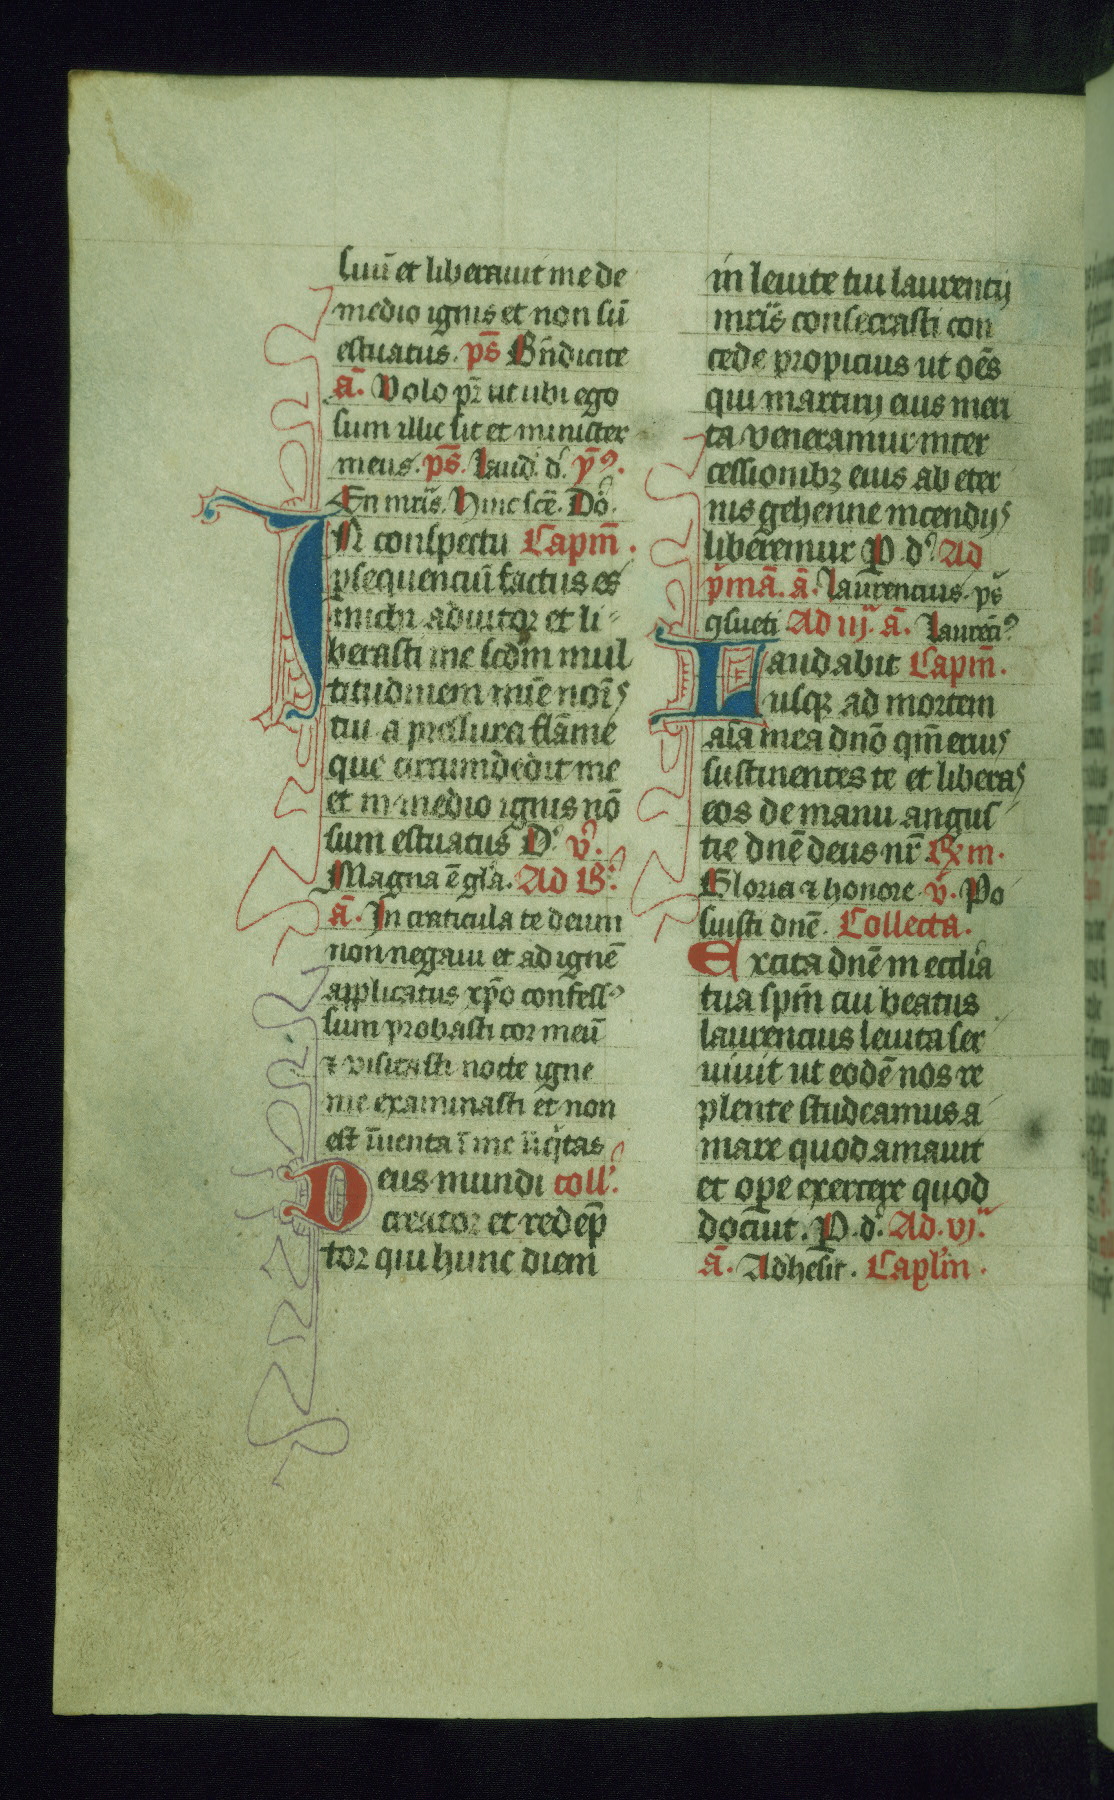 suū et liberauit me de
medio ignis et non sū
estuatus. ps̄ Bn̄dicite
ā. Volo pr̄ ut ubi ego
sum illic sit et minister
meus. ps̄. Laud. d. ỹ.
En mr̄is. Hinc scē. Do.
IN conspectu Capm̄.
psequenciū factus es
michi adiutor et li
berasti me scdm̄ mul
titudinem mīe noīs
tui a pressura flāme
que circumdedit me
et in medio ignis nō
sum estuatus D. v.
Magna ē glā. Ad B.
ā. In craticula te deum
non negaui et ad ignē
applicatus xp̄o confess
sum probasti cor meū
⁊ visitasti nocte igne
me examinasti et non
est īuenta ī me īiq̇tas
Deus mundi coll̄.
creator et redēp
tor qui hunc diem
in leuite tui laurencij
mr̄is consecrasti con
cede propicius ut oēs
qui martirij eius meri
ta veneramur inter
cessionibꝫ eius ab eter
nis gehenne incendijs
liberemur P d. Ad
p̄mā. ā. Laurencius. ps̄
ꝯsueti Ad iij. ā. Laurēci
Laudabit Capm̄.
usqꝫ ad mortem
aīa mea dn̄o qm̄ eruis
sustinentes te et liberas
eos de manu angus
tie dn̄e deus nr̄ Rm.
Gloria ⁊ honore v. Po
suisti dn̄e. Collecta.
Excita dn̄e in ecclīa
tua spm̄ cui beatus
laurencius leuita ser
uiuit ut eodē nos re
pleti studeamus a
mare quod amauit
et ope exercere quod
docuit. P. d. Ad. vj.
ā. Adhesit. Caplm̄.